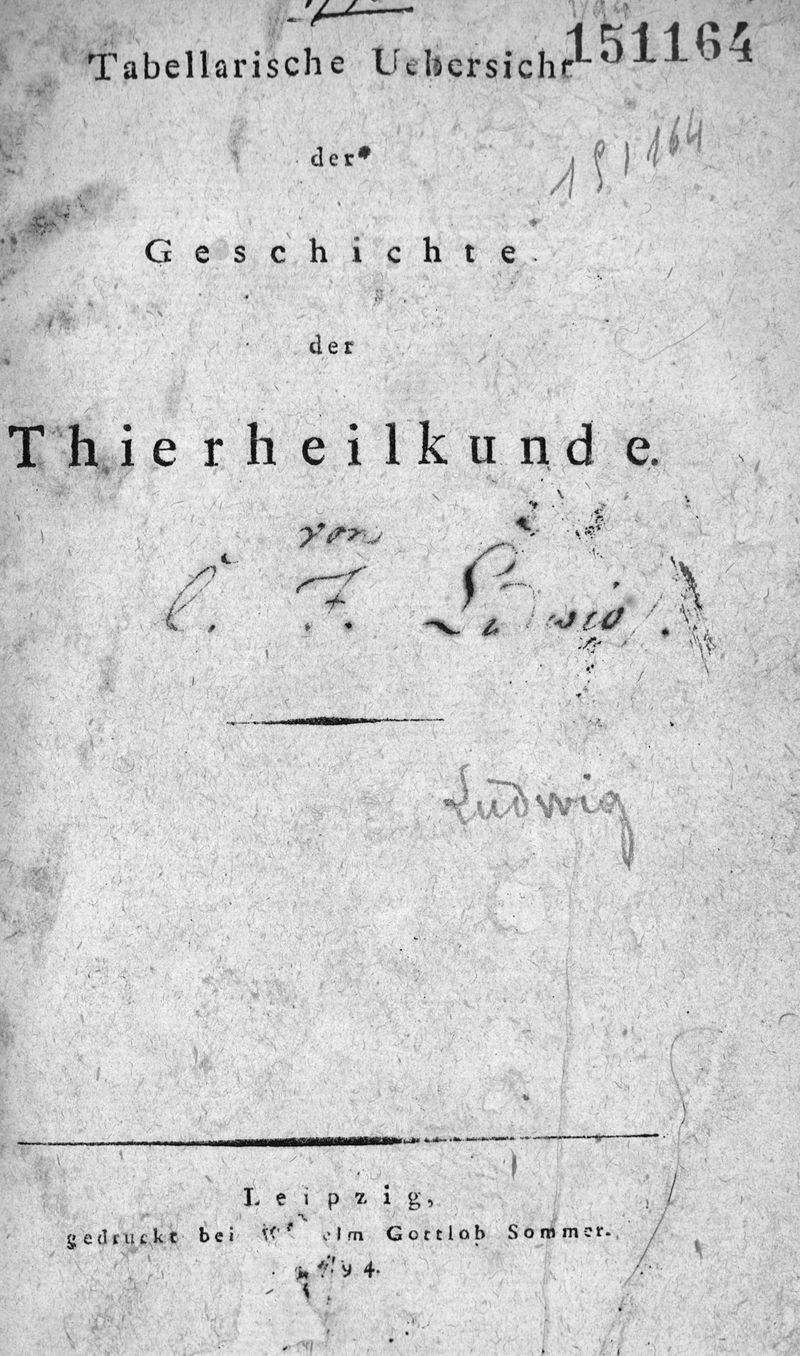 Tabellarische Uebersicht
151164
der
151164
Geschichte
der
Thierheilkunde.
von
C. F. Ludwig.
Ludwig
Leipzig,
gedruckt bei Gottlob Sommer.